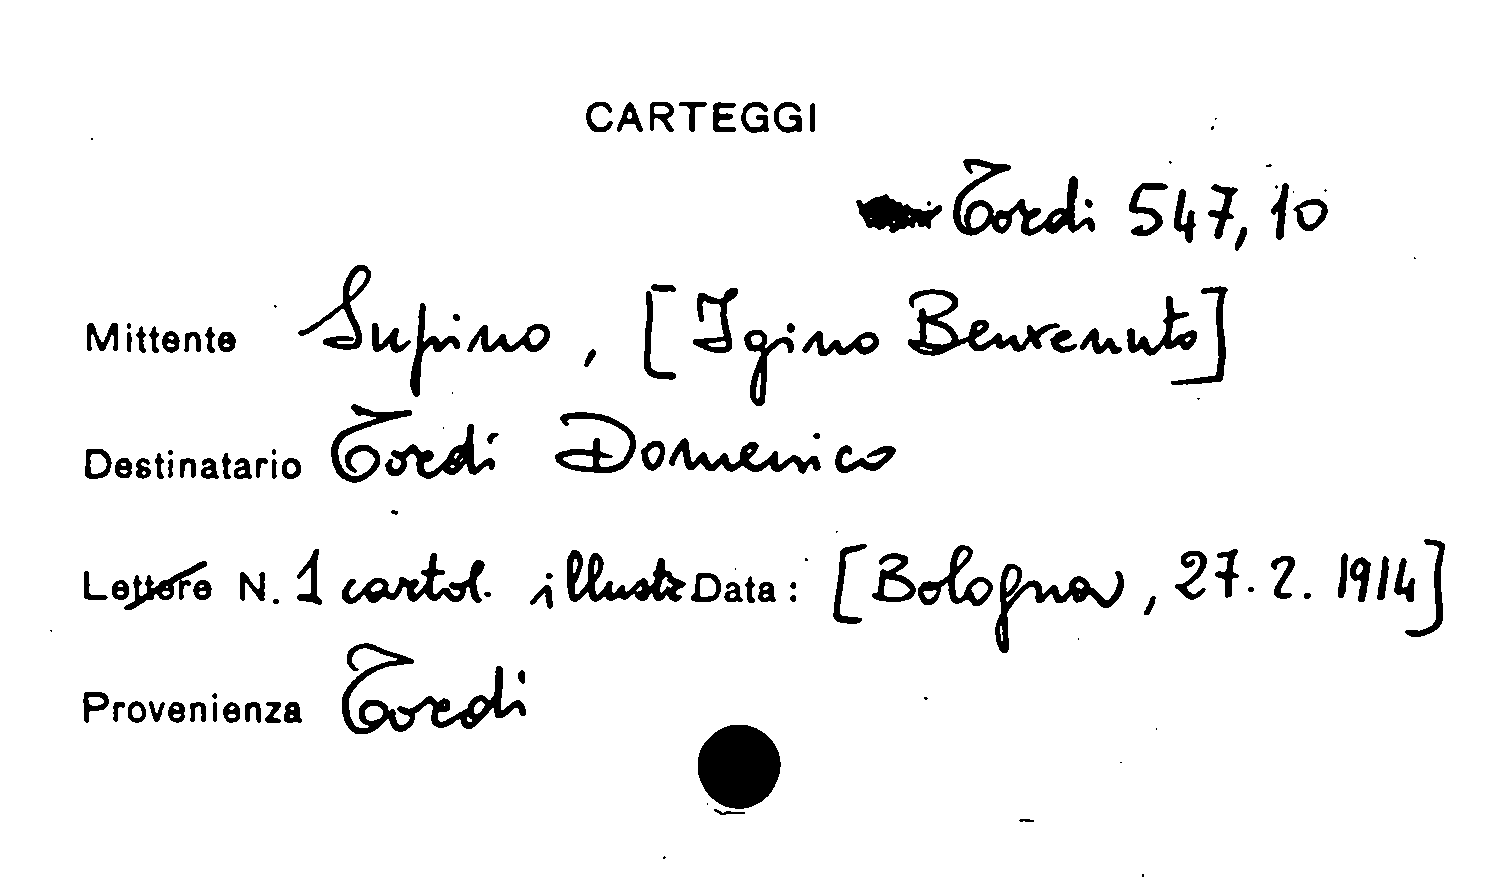 CARTEGGI
Tordi 547, 10
Mittente Supino, [Igino Benvenuto]
Destinatario Tordi Domenico
Lettere N. 1 cartol. illustr Data: [Bologna, 27. 2. 1914]
Provenienza Tordi